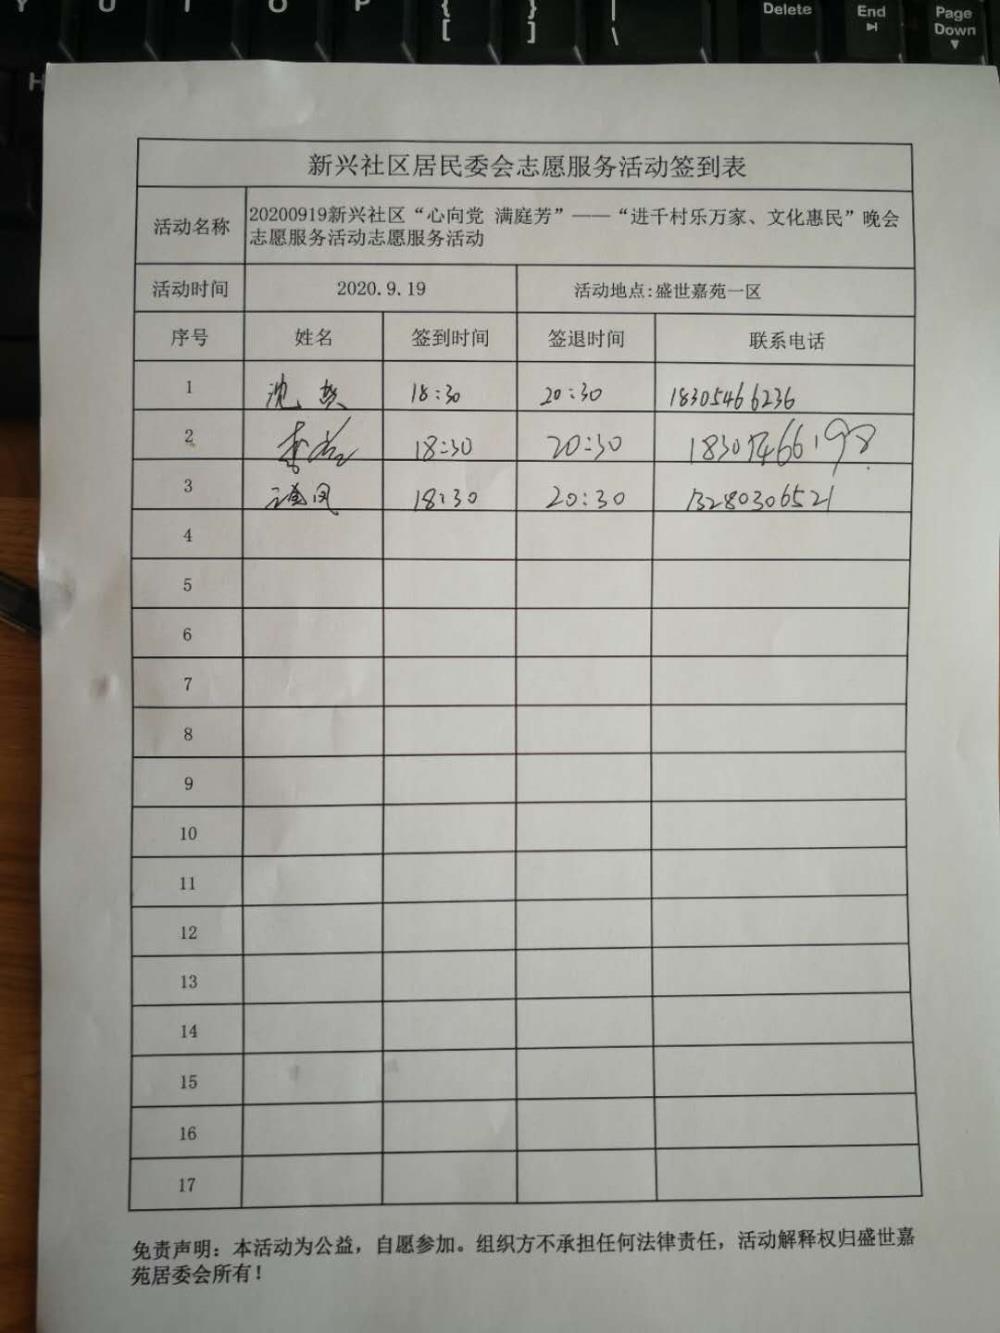 Y U I O P { [ } ] | \ Delete End Page Down
H
新兴社区居民委会志愿服务活动签到表
活动名称 20200919新兴社区“心向党 满庭芳”——“进千村乐万家、文化惠民”晚会
志愿服务活动志愿服务活动
活动时间 2020.9.19 活动地点:盛世嘉苑一区
序号 姓名 签到时间 签退时间 联系电话
1 沈 18:30 20:30 18305466236
2 李 18:30 20:30 18305466198
3 凤 18:30 20:30 13280306521
4
5
6
7
8
9
10
11
12
13
14
15
16
17
免责声明：本活动为公益，自愿参加。组织方不承担任何法律责任，活动解释权归盛世嘉
苑居委会所有！